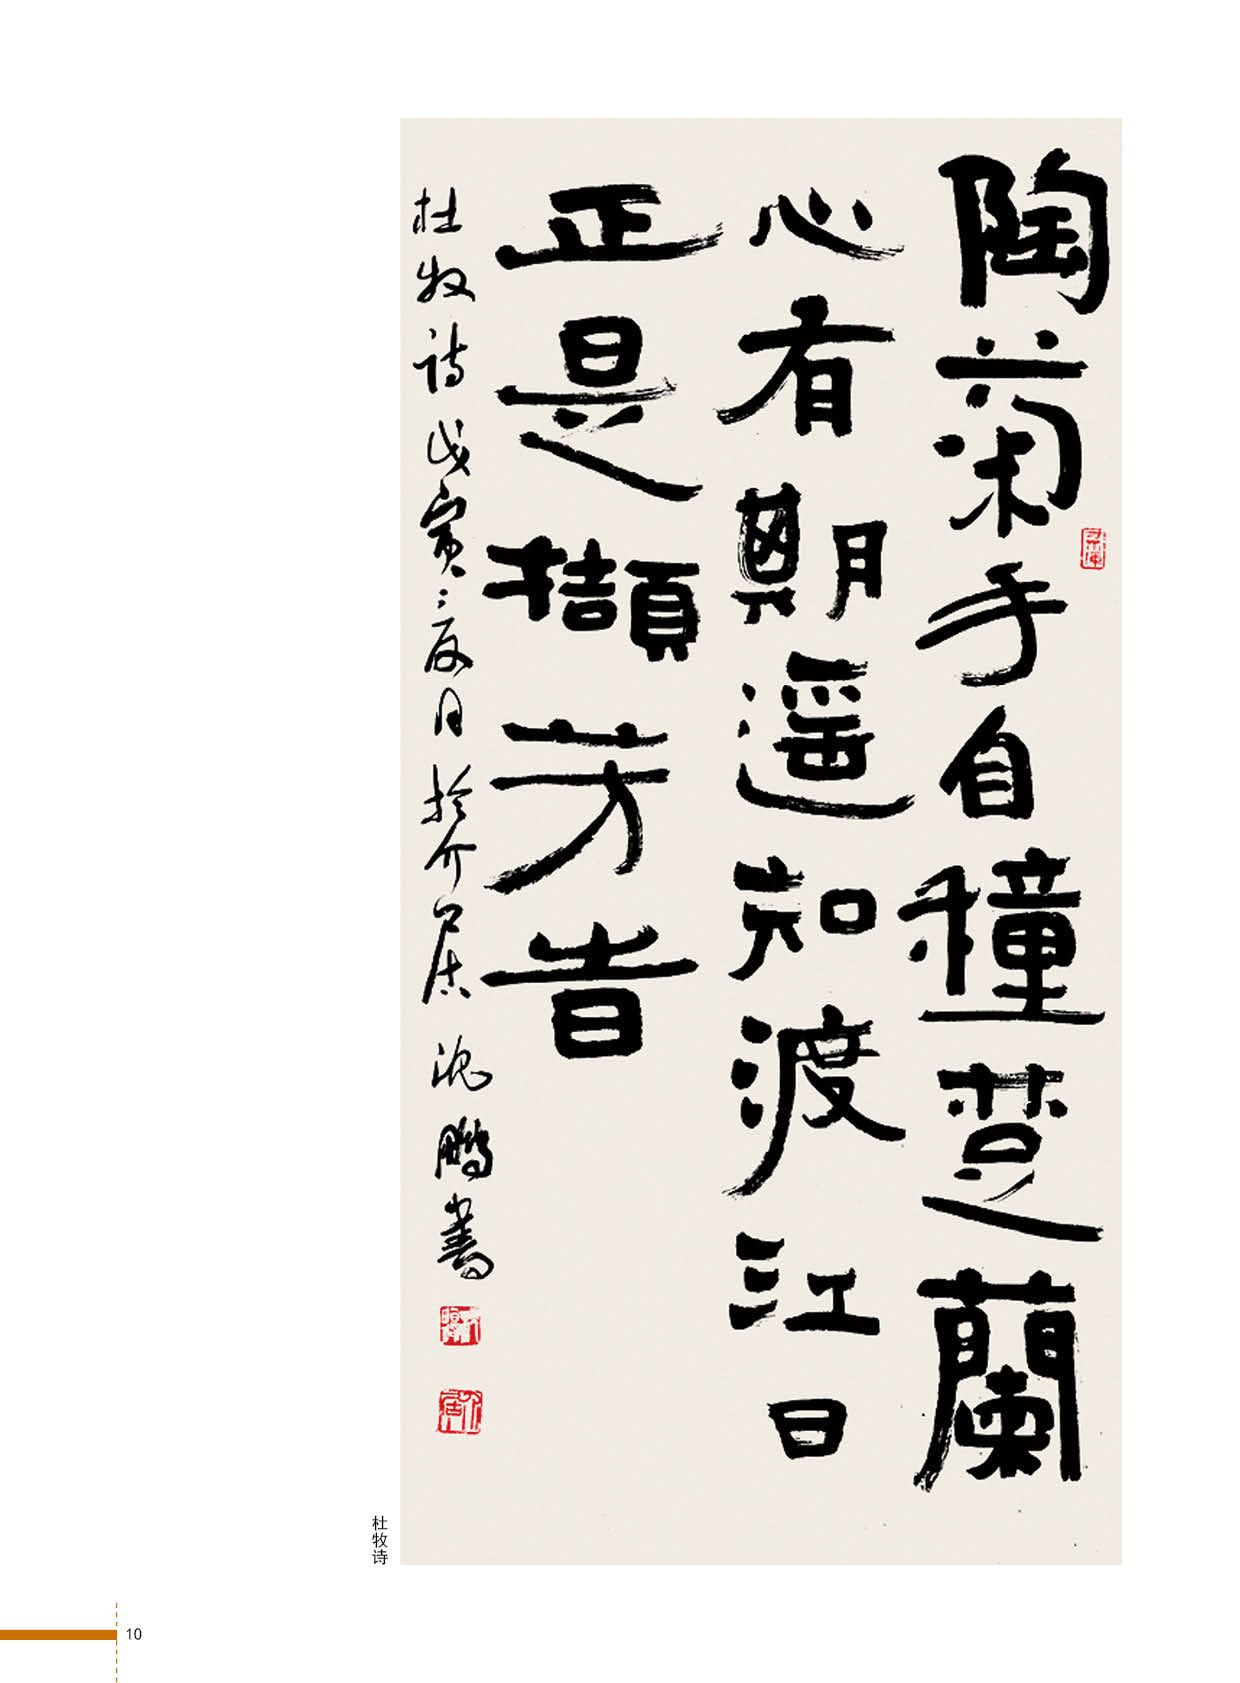 陶菊手自穜楚蘭
心有期遥知渡江日
正是擷芳旹
杜牧詩戊寅夏月於介居沈鵬書
杜牧诗
10